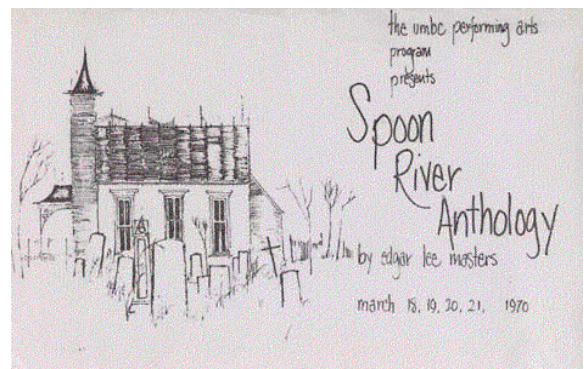 the umbc performing arts
program
presents
Spoon
River
Anthology
by edgar lee masters
march 18, 19, 20, 21, 1970